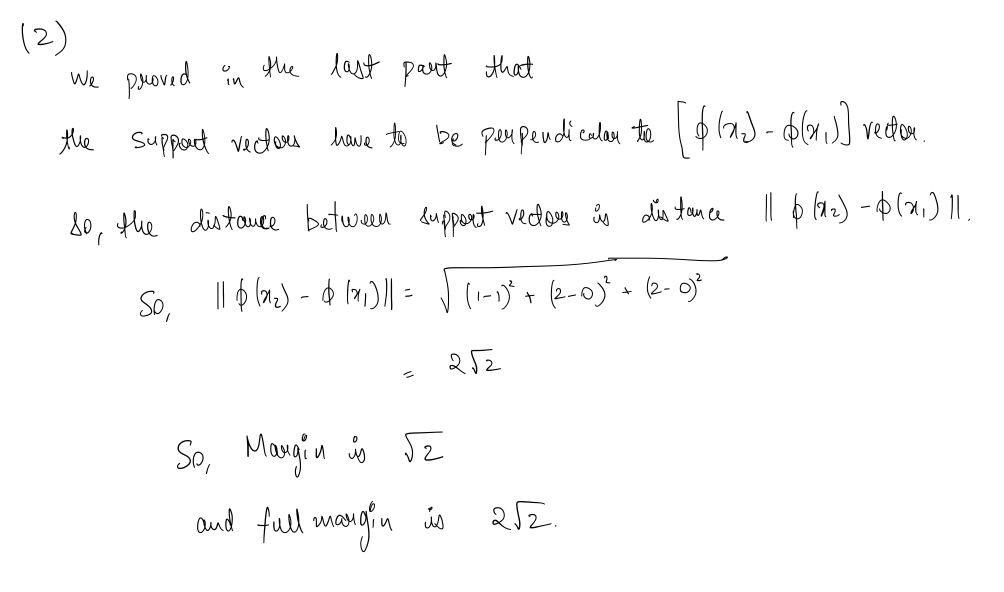 (2)
We proved in the last part that
the support vectors have to be perpendicular to [ϕ(x₂) - ϕ(x₁)] vector.
So, the distance between support vectors is distance ||ϕ(x₂) - ϕ(x₁)||.
So, ||ϕ(x₂) - ϕ(x₁)|| = √((1-1)² + (2-0)² + (2-0)²)
= 2√2
So, Margin is √2
and full margin is 2√2.